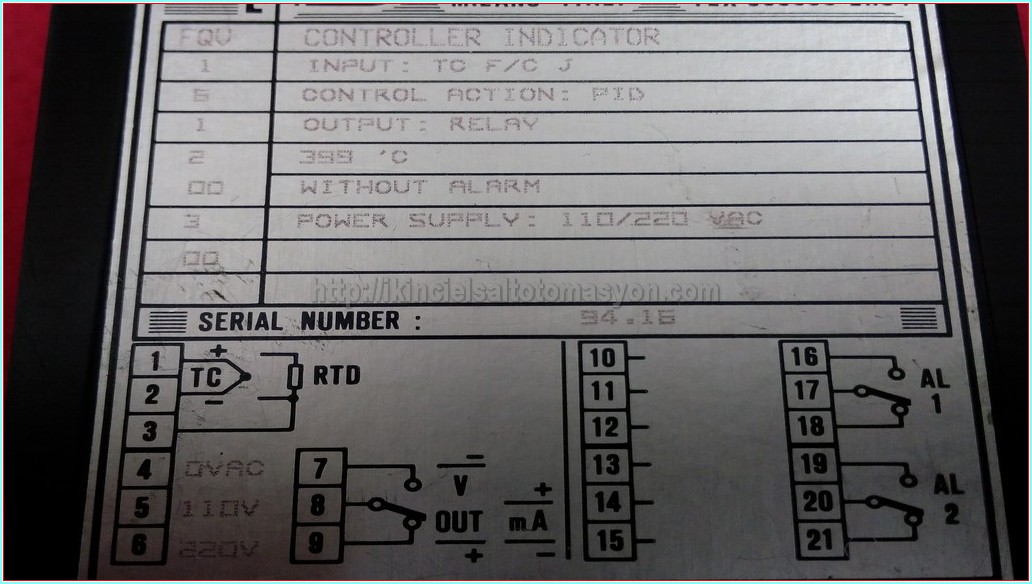 FQV CONTROLLER INDICATOR
1 INPUT: TC F/C J
5 CONTROL ACTION: PID
1 OUTPUT: RELAY
2 399 'C
00 WITHOUT ALARM
3 POWER SUPPLY: 110/220 VAC
00
http://ikincielsaltotomasyon.com
SERIAL NUMBER : 94.16
1 + TC RTD
2 −
3
4 0VAC
5 110V
6 220V
7 − V
8 OUT + mA
9 + −
10
11
12
13
14
15
16
17 AL 1
18
19
20 AL 2
21